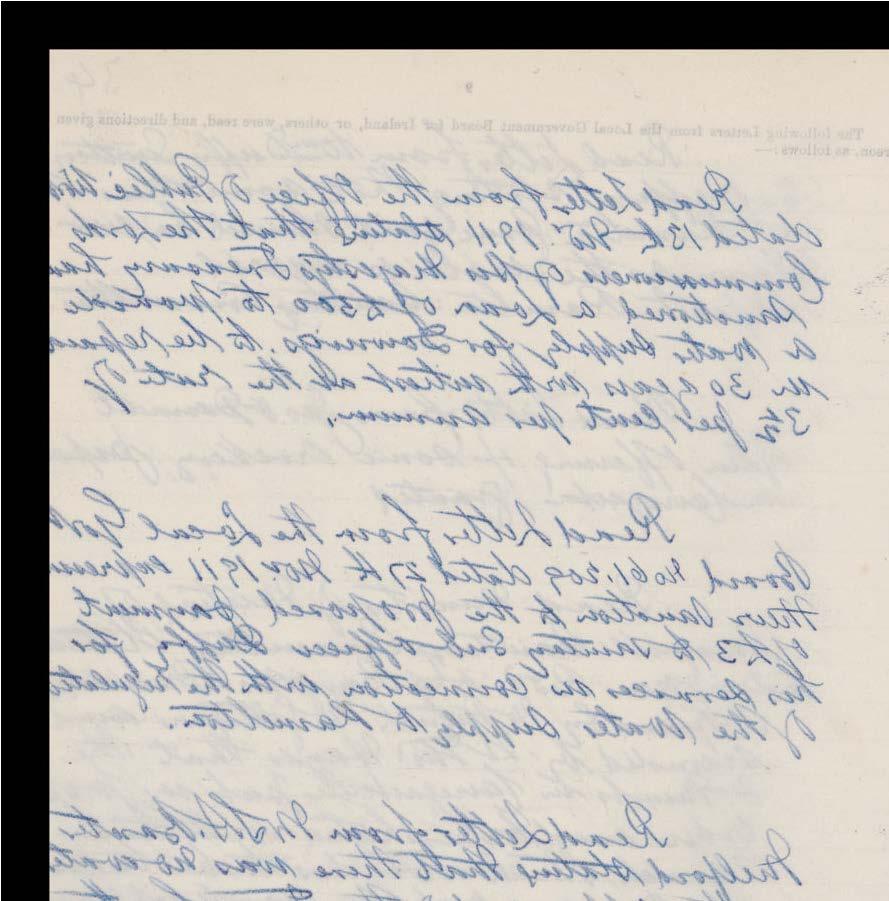 9
The following Letters from the Local Government Board for Ireland, or others, were read, and directions given
reon, as follows:—
Read letter from the Office of Public Wor
dated 13th Nov 1911 stating that the Lords
Commissioners of His Majesty's Treasury have
Sanctioned a Loan of £500 to provide
a Water Supply for Downings, to be repaid
in 30 years with interest at the rate of
3½ per cent per annum.
Read Letter from the Local Govt
Board No 61.209 dated 27th Nov. 1911 express
their Sanction to the proposed payment
of £3 to Sanitary Sub Officer Duffy for
his services in connection with the regulation
of the Water Supply to Ramelton.
Read Letter from
Milford stating that there was no water